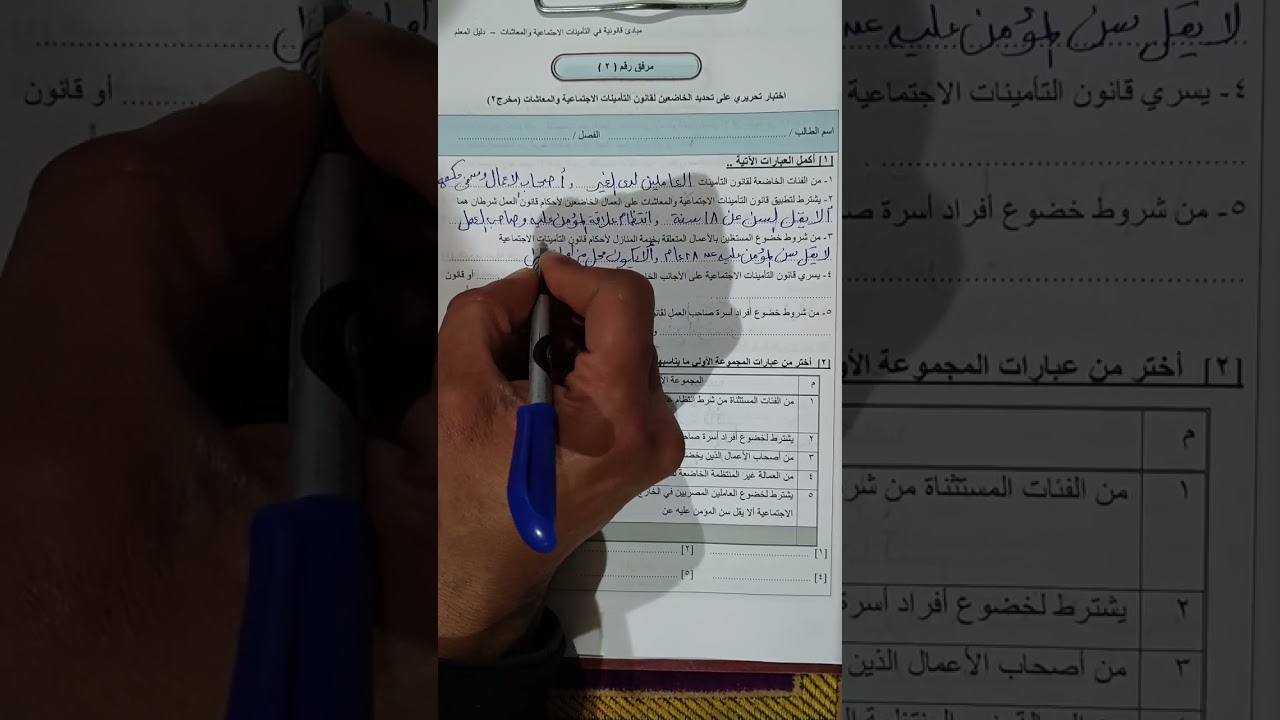 مبادئ قانونية في التأمينات الاجتماعية والمعاشات – دليل المعلم
مرفق رقم ( ٢ )
اختبار تحريري على تحديد الخاضعين لقانون التأمينات الاجتماعية والمعاشات (مخرج٢)
اسم الطالب / الفصل /
[١] أكمل العبارات الآتية ..
١- من الفئات الخاضعة لقانون التأمينات العاملين لدى الغير و أصحاب الاعمال ومن
٢- يشترط لتطبيق قانون التأمينات الاجتماعية والمعاشات على العمال الخاضعين لأحكام قانون العمل شرطان هما
ألا يقل السن عن ١٨ سنة وانتظام علاقة المؤمن عليه وصاحب العمل
٣- من شروط خضوع المشتغلين بالأعمال المتعلقة بخدمة المنازل لأحكام قانون التأمينات الاجتماعية
لا يقل سن المؤمن عليه عن ١٨ عام وألا يكون محل
٤- يسري قانون التأمينات الاجتماعية على الأجانب أو قانون
٥- من شروط خضوع أفراد أسرة صاحب العمل
و
[٢] أختر من عبارات المجموعة الأولى ما يناسبها
م المجموعة
١ من الفئات المستثناة من شرط انتظام
٢ يشترط لخضوع أفراد أسرة
٣ من أصحاب الأعمال الذين
٤ من العمالة غير المنتظمة الخاضعة
٥ يشترط لخضوع العاملين المصريين في الخارج
الاجتماعية ألا يقل سن المؤمن عليه عن
[١] [٢]
[٤] [٥]
لا يقل سن المؤمن عليه عن
٤- يسري قانون التأمينات الاجتماعية
أو قانون
٥- من شروط خضوع أفراد أسرة
[٢] أختر من عبارات المجموعة
م
١ من الفئات المستثناة من
٢ يشترط لخضوع أفراد أسرة
٣ من أصحاب الأعمال الذين